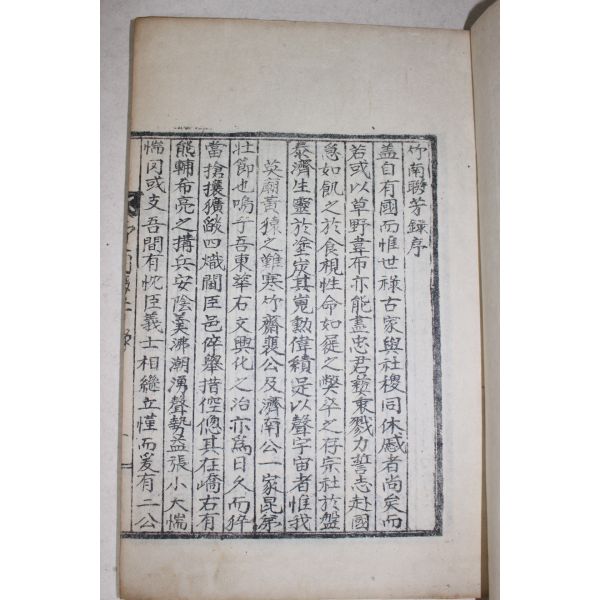 竹南聯芳錄序
盖自有國而惟世祿古家與社稷同休慽者尚矣而
若或以草野韋布亦能盡忠君 秉戮力誓志赴國
急如飢之於食視性命如屣之獘卒之存宗社於盤
泰濟生靈於塗炭其嵬勳偉績足以聲宇宙者惟我
英廟黃猿之難寒竹齋裵公及濟南公一家昆弟
壯節也嗚乎吾東華右文興化之治亦爲日久而猝
當搶攘獷燄四熾閫臣邑倅擧措倥偬其在嶠右有
熊輔希亮之搆兵安陰羹沸潮湧聲勢益張小大惴
惴罔或支吾間有忱臣義士相繼立慬而爰有二公